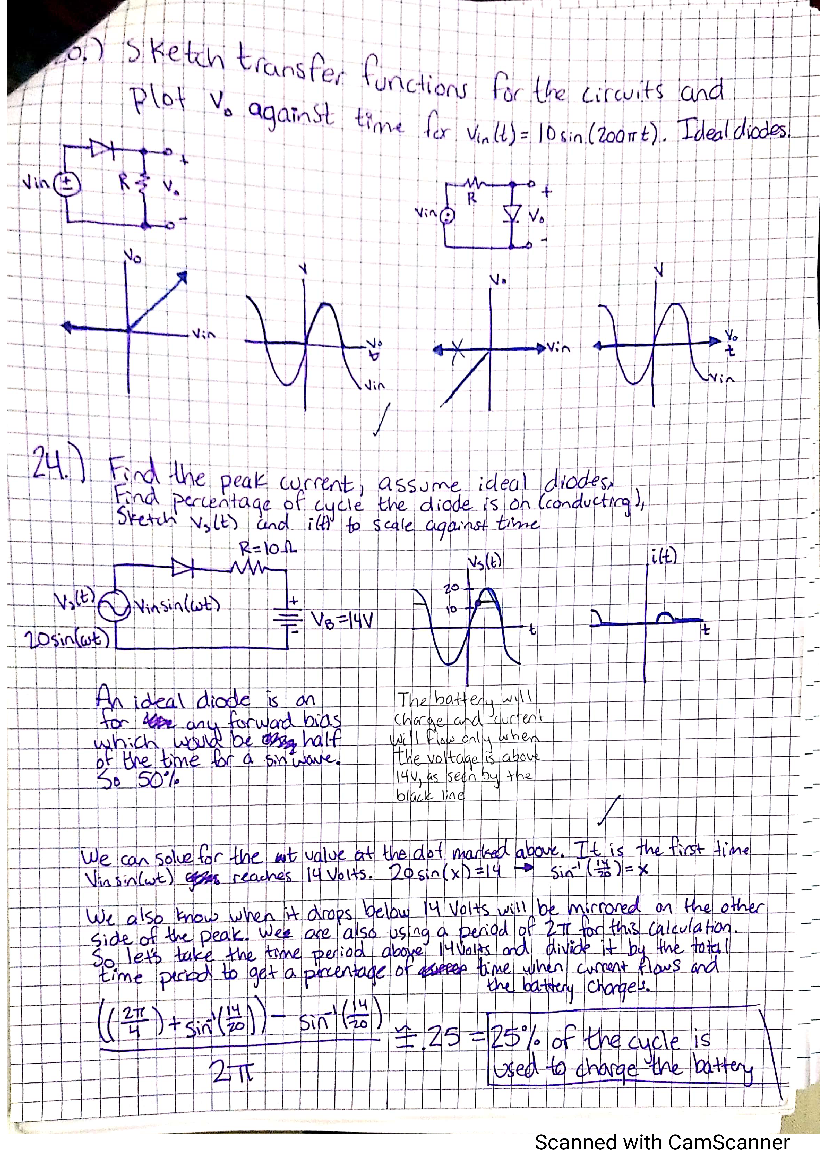 0.) Sketch transfer functions for the circuits and
plot Vo against time for Vin(t) = 10 sin(200πt). Ideal diodes.
Vin
R
+
Vo
-
Vin
R
+
Vo
-
Vo
Vin
V
Vo
Vin
Vo
X
Vin
V
Vo
t
Vin
24.) Find the peak current, assume ideal diodes.
Find percentage of cycle the diode is on (conducting),
Sketch Vs(t) and i(t) to scale against time
R=10Ω
Vs(t)
Vinsin(ωt)
20sin(ωt)
+
-
VB=14V
Vs(t)
20
10
t
i(t)
t
An ideal diode is on
for any forward bias
which would be half
of the time for a sin wave.
So 50%
The battery will
charge and current
will flow only when
the voltage is above
14V, as seen by the
black line
We can solve for the ωt value at the dot marked above. It is the first time
Vinsin(ωt) reaches 14 Volts. 20sin(x)=14 → sin⁻¹(14/20)=x
We also know when it drops below 14 Volts will be mirrored on the other
side of the peak. We are also using a period of 2π for this calculation.
So let's take the time period above 14 Volts and divide it by the total
time period to get a percentage of time when current flows and
the battery charges.
((2π/4) + sin⁻¹(14/20)) - sin⁻¹(14/20)
2π
≅ .25 = 25% of the cycle is
used to charge the battery
Scanned with CamScanner